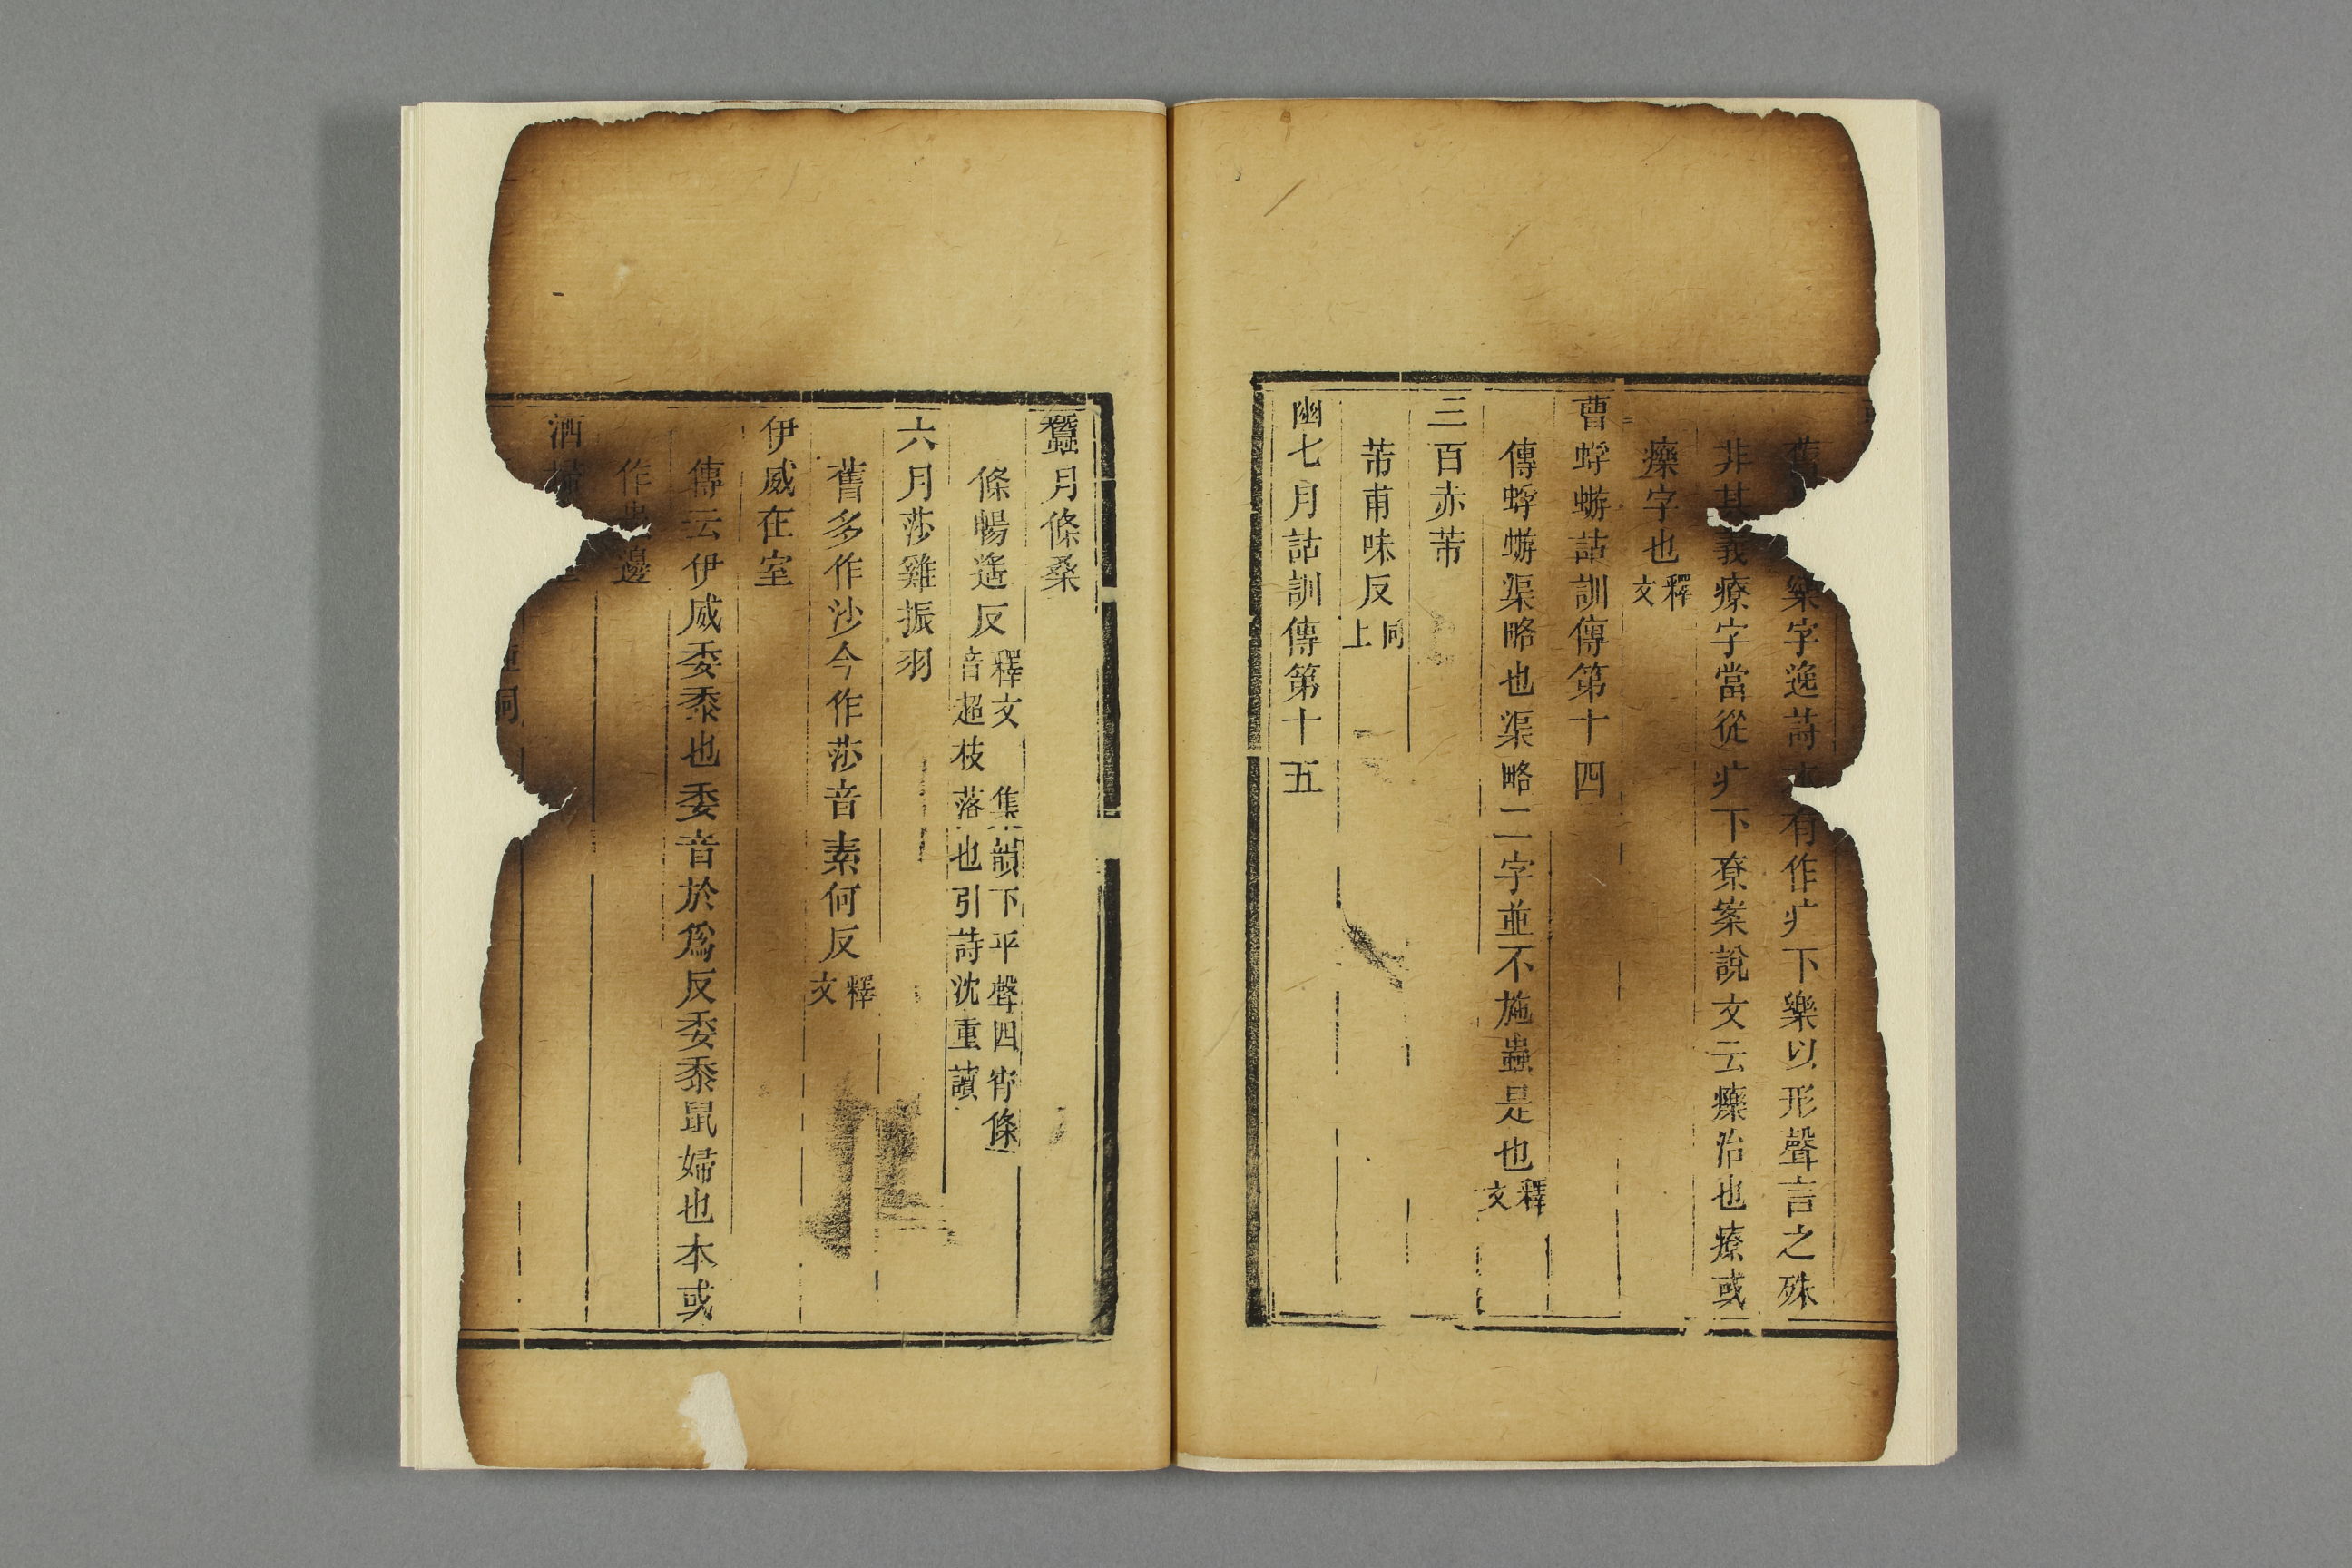 舊樂字逸詩有作疒下樂以形聲言之殊
非其義療字當從疒下尞案說文云㿹治也療或
㿹字也釋文
曹蜉蝣詁訓傳第十四
傳蜉蝣渠略也渠略二字並不施蟲是也釋文
三百赤芾
芾甫味反同上
豳七月詁訓傳第十五
蠶月條桑
條暢遙反釋文 集韻下平聲四宵條
音超枝落也引詩沈重讀
六月莎雞振羽
舊多作沙今作莎音素何反釋文
伊威在室
傳云伊威委黍也委音於爲反委黍鼠婦也本或
作虫邊
洒埽